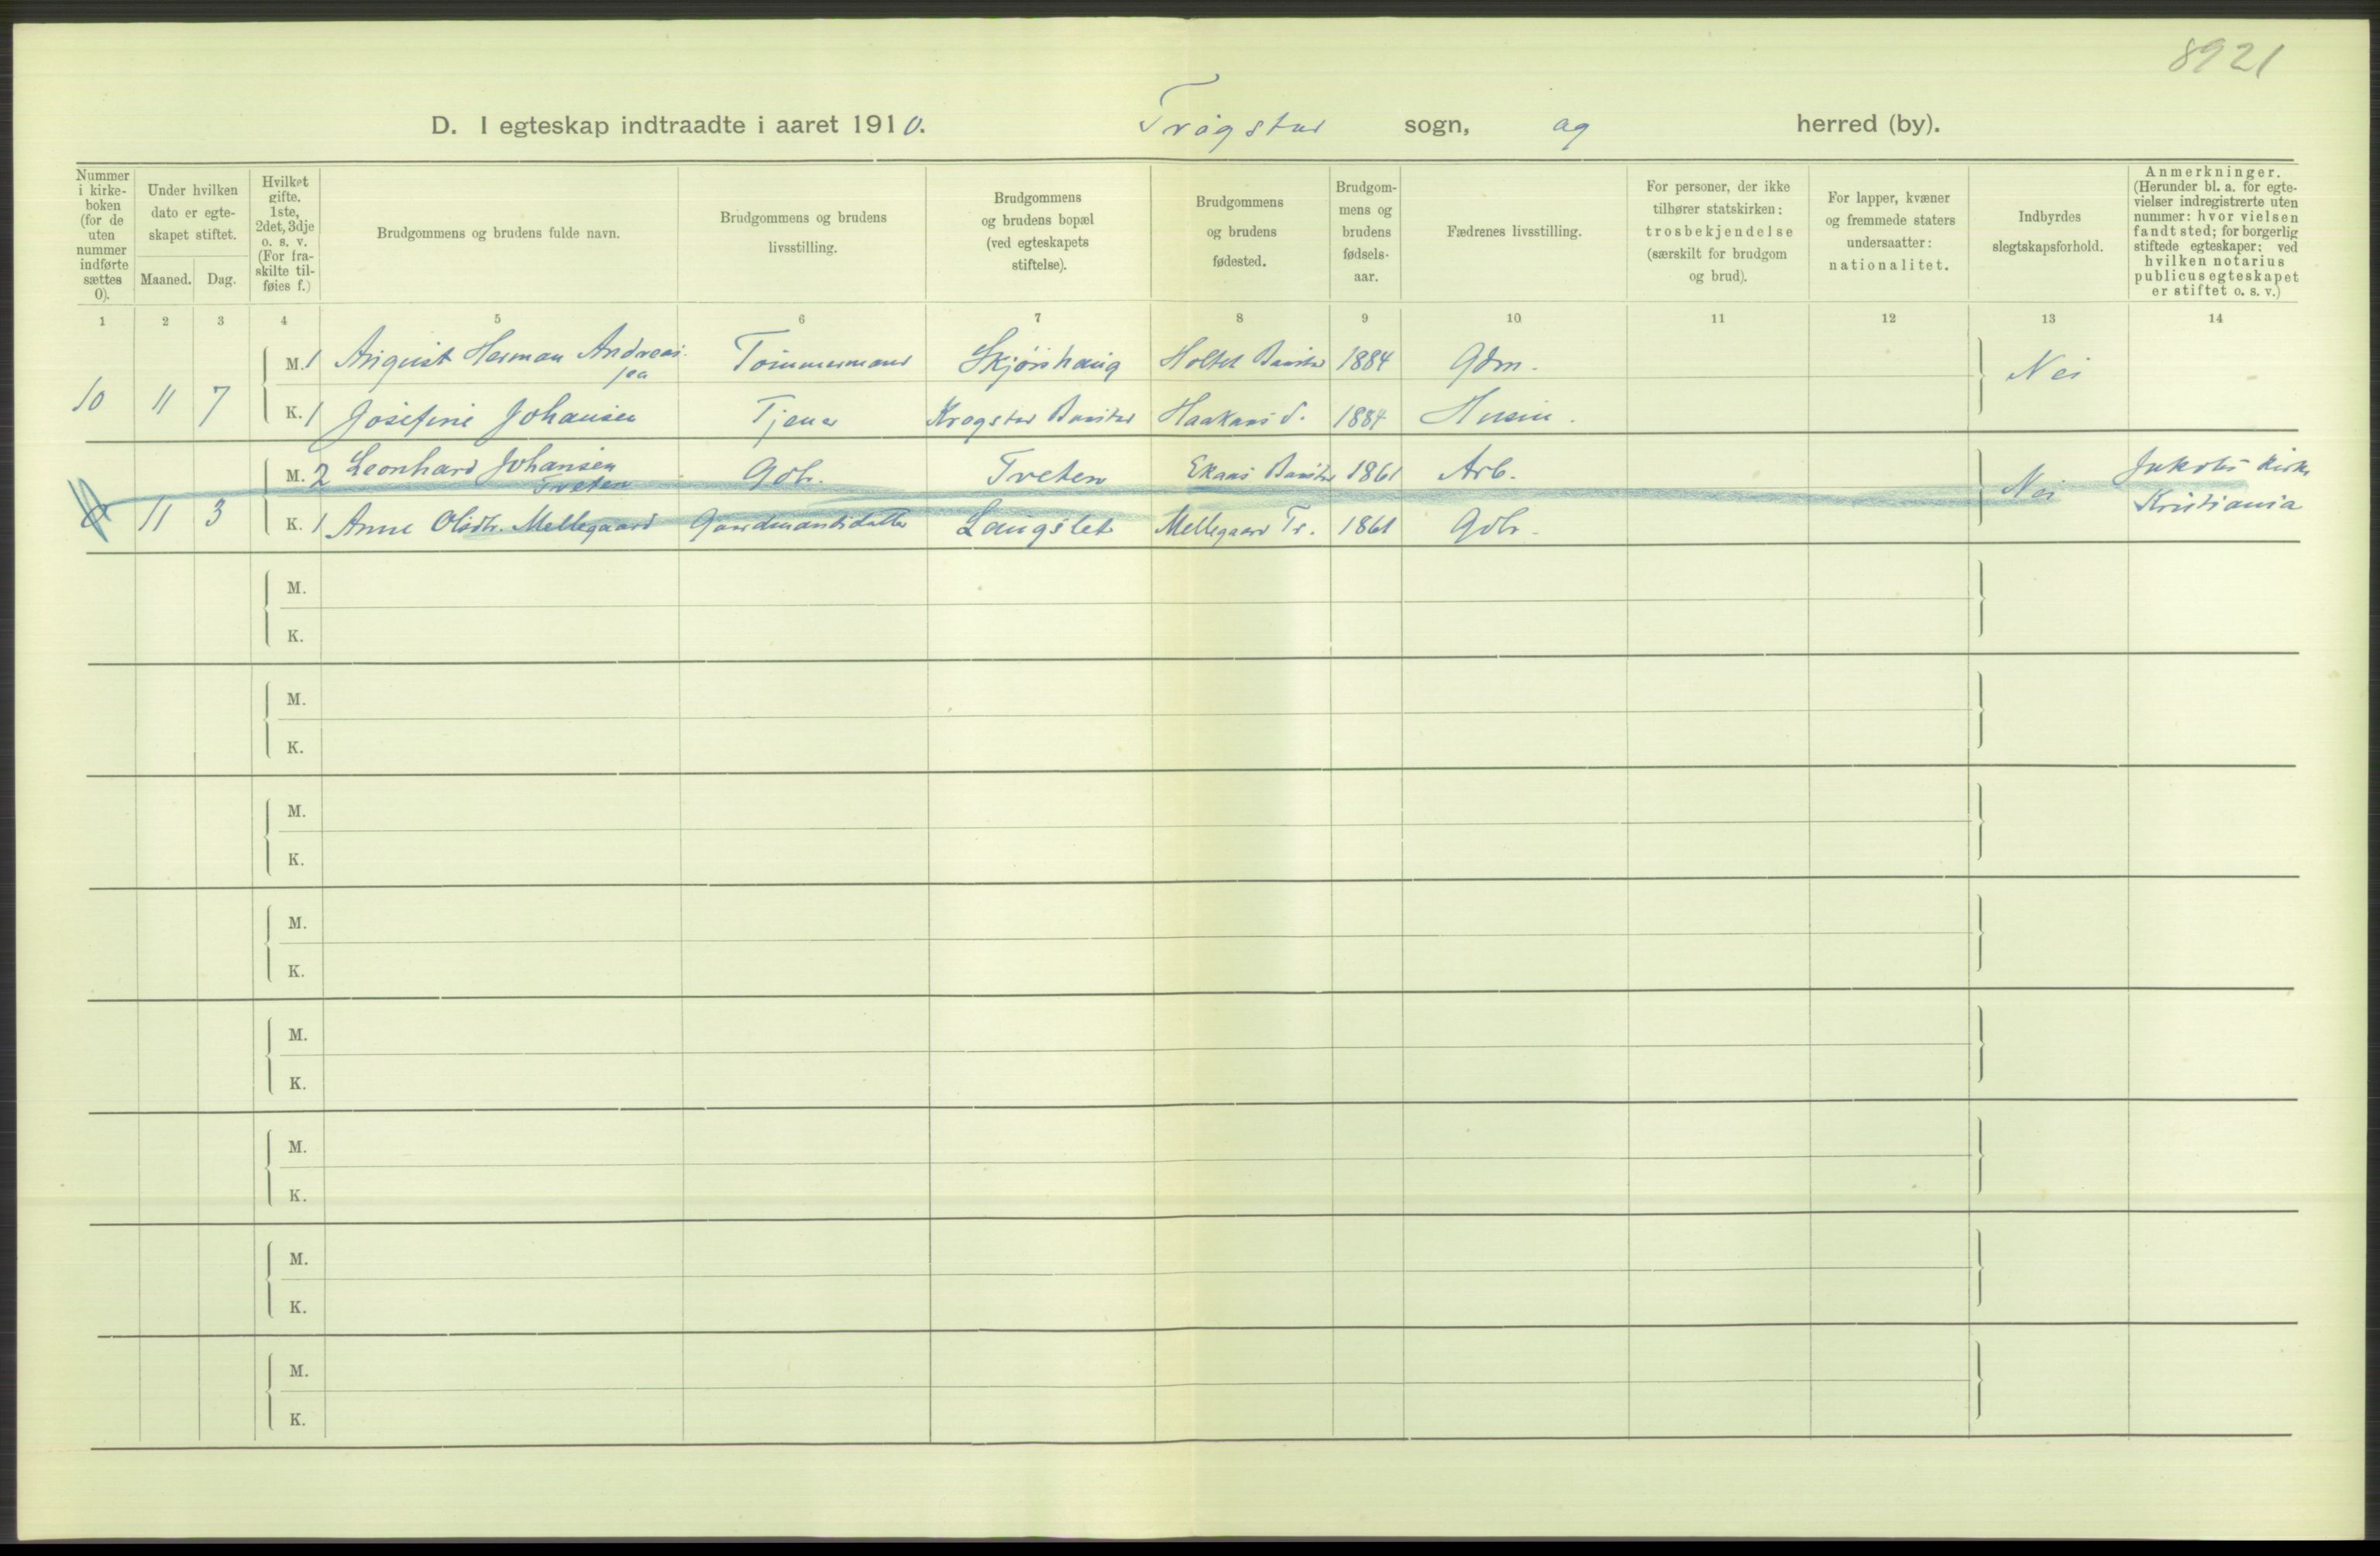 8921
D. I egteskap indtraadte i aaret 1910. Trøgstad sogn, og herred (by).
Nummer i kirkeboken (for de uten nummer indførte sættes 0).
Under hvilken dato er egteskapet stiftet.
Maaned. Dag.
Hvilket gifte. 1ste, 2det, 3dje o. s. v. (For fraskilte tilføies f.)
Brudgommens og brudens fulde navn.
Brudgommens og brudens livsstilling.
Brudgommens og brudens bopæl (ved egteskapets stiftelse).
Brudgommens og brudens fødested.
Brudgommens og brudens fødselsaar.
Fædrenes livsstilling.
For personer, der ikke tilhører statskirken: trosbekjendelse (særskilt for brudgom og brud).
For lapper, kvæner og fremmede staters undersaatter: nationalitet.
Indbyrdes slegtskapsforhold.
Anmerkninger. (Herunder bl. a. for egtevielser indregistrerte uten nummer: hvor vielsen fandt sted; for borgerlig stiftede egteskaper: ved hvilken notarius publicus egteskapet er stiftet o. s. v.)
1 2 3 4 5 6 7 8 9 10 11 12 13 14
10 11 7
M. 1 August Herman Andreas- Tømmermand Skjønhaug Holtet 1884 Gdm. Nei
sen
K. 1 Josefine Johansen Tjener Krogstad Haakaas 1884 Husm.
0 11 3
M. 2 Leonhard Johansen Gbr. Tveten Ekaas 1861 Arb. Nei Jakobs Kirke
Tveten
K. 1 Anne Olsdtr. Mellegaard Gaardmandsdatter Langslet Mellegaard Tr. 1861 Gbr. Kristiania
M.
K.
M.
K.
M.
K.
M.
K.
M.
K.
M.
K.
M.
K.
M.
K.